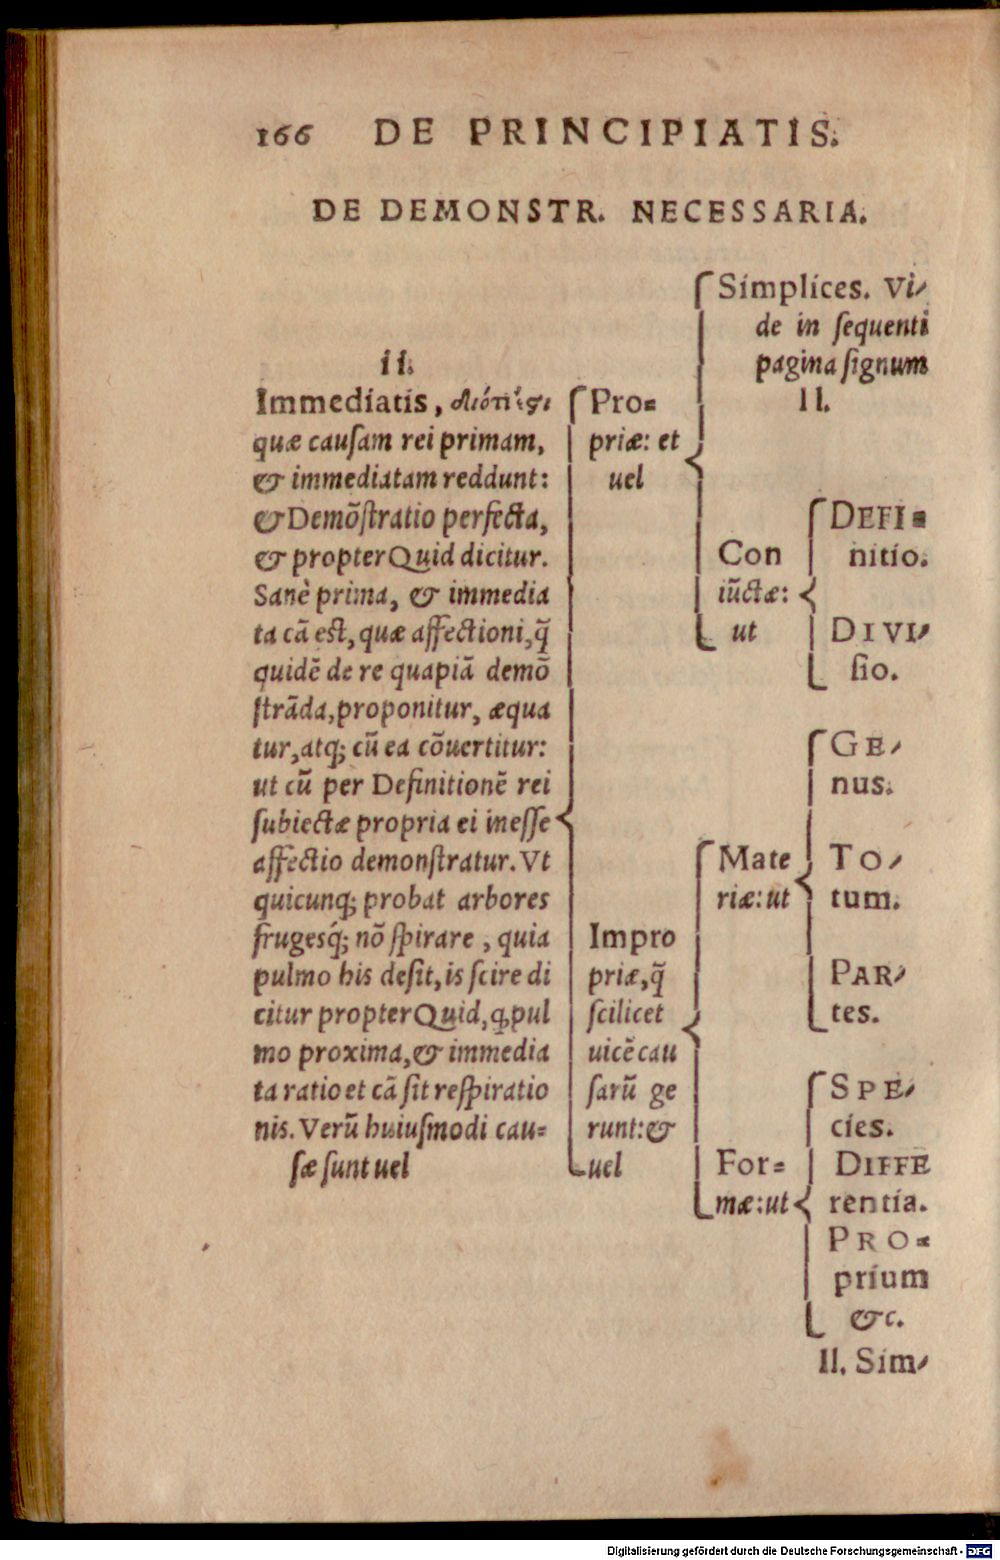 166 DE PRINCIPIATIS.
DE DEMONSTR. NECESSARIA.
II.
Immediatis,
quæ causam rei primam,
& immediatam reddunt:
& Demõstratio perfecta,
& propter Quid dicitur.
Sanè prima, & immedia
ta cã est, quæ affectioni, q̃
quidẽ de re quapiã demõ
strãda, proponitur, æqua
tur, atq; cũ ea cõuertitur:
ut cũ per Definitionẽ rei
subiectæ propria ei inesse
affectio demonstratur. Vt
quicunq; probat arbores
frugesq́; nõ spirare, quia
pulmo his desit, is scire di
citur propter Quid, ꝙ pul
mo proxima, & immedia
ta ratio et cã sit respiratio
nis. Verũ huiusmodi cau-
sæ sunt uel
Pro-
priæ: et
uel
Impro
priæ, q̃
scilicet
uicẽ cau
sarũ ge
runt: &
uel
Simplices. Vi-
de in sequenti
pagina signum
II.
Con
iũctæ:
ut
DEFI-
nitio.
DIVI-
sio.
Mate
riæ: ut
GE-
nus.
TO-
tum.
PAR-
tes.
For-
mæ: ut
SPE-
cies.
DIFFE
rentia.
PRO-
prium
&c.
II. Sim-
Digitalisierung gefördert durch die Deutsche Forschungsgemeinschaft - DFG